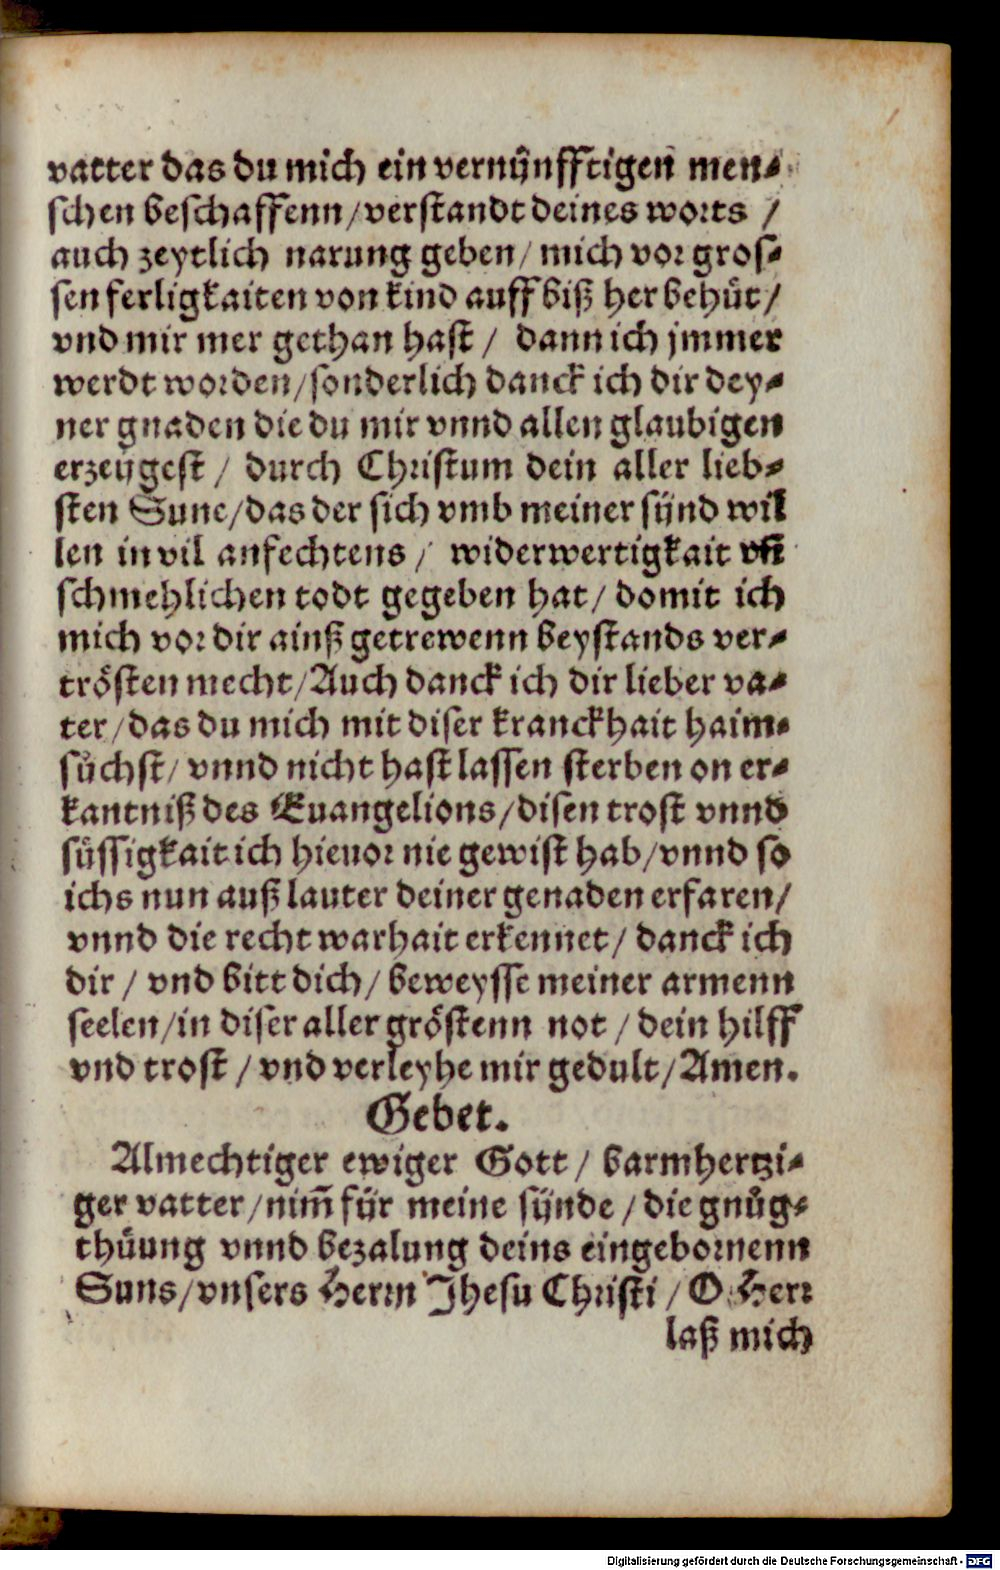 vatter das du mich ein vernünfftigen men⸗
schen beschaffenn/verstandt deines worts /
auch zeytlich narung geben/ mich vor gros⸗
sen ferligkaiten von kind auff biß her behůt/
vnd mir mer gethan hast / dann ich jmmer
werdt worden/sonderlich danck ich dir dey⸗
ner gnaden die du mir vnnd allen glaubigen
erzeygest / durch Christum dein aller lieb⸗
sten Sune/das der sich vmb meiner sünd wil
len in vil anfechtens / widerwertigkait vñ
schmehlichen todt gegeben hat/ domit ich
mich vor dir ainß getrewenn beystands ver⸗
trösten mecht/Auch danck ich dir lieber va⸗
ter/das du mich mit diser kranckhait haim⸗
sůchst/ vnnd nicht hast lassen sterben on er⸗
kantniß des Euangelions/disen trost vnnd
süssigkait ich hieuor nie gewist hab/vnnd so
ichs nun auß lauter deiner genaden erfaren/
vnnd die recht warhait erkennet/ danck ich
dir / vnd bitt dich/ beweysse meiner armenn
seelen/in diser aller gröstenn not / dein hilff
vnd trost / vnd verleyhe mir gedult/Amen.
Gebet.
Almechtiger ewiger Gott/ barmhertzi⸗
ger vatter/nim̃ für meine sünde / die gnůg⸗
thůung vnnd bezalung deins eingebornenn
Suns/vnsers Herrn Jhesu Christi / O Herr
laß mich
Digitalisierung gefördert durch die Deutsche Forschungsgemeinschaft - DFG